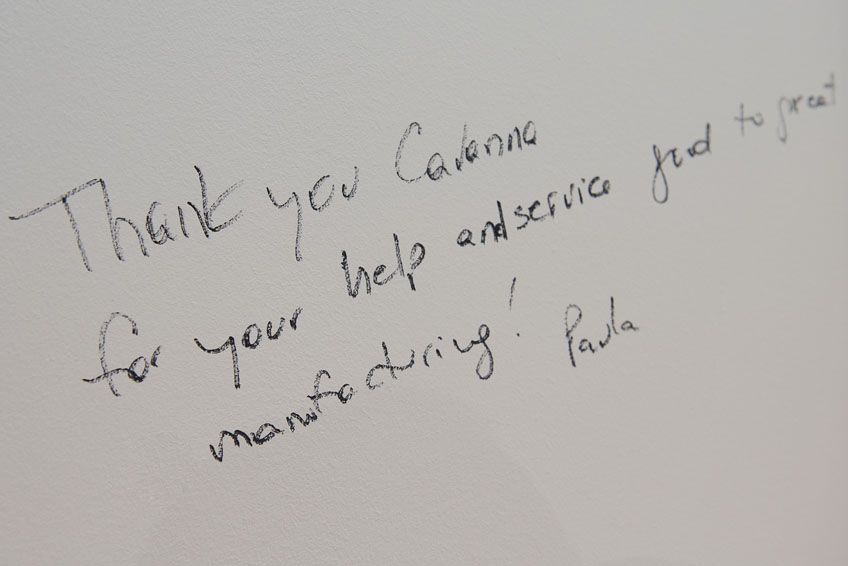 Thank you Cavanna
for your help and service good to great
manufacturing! Paula